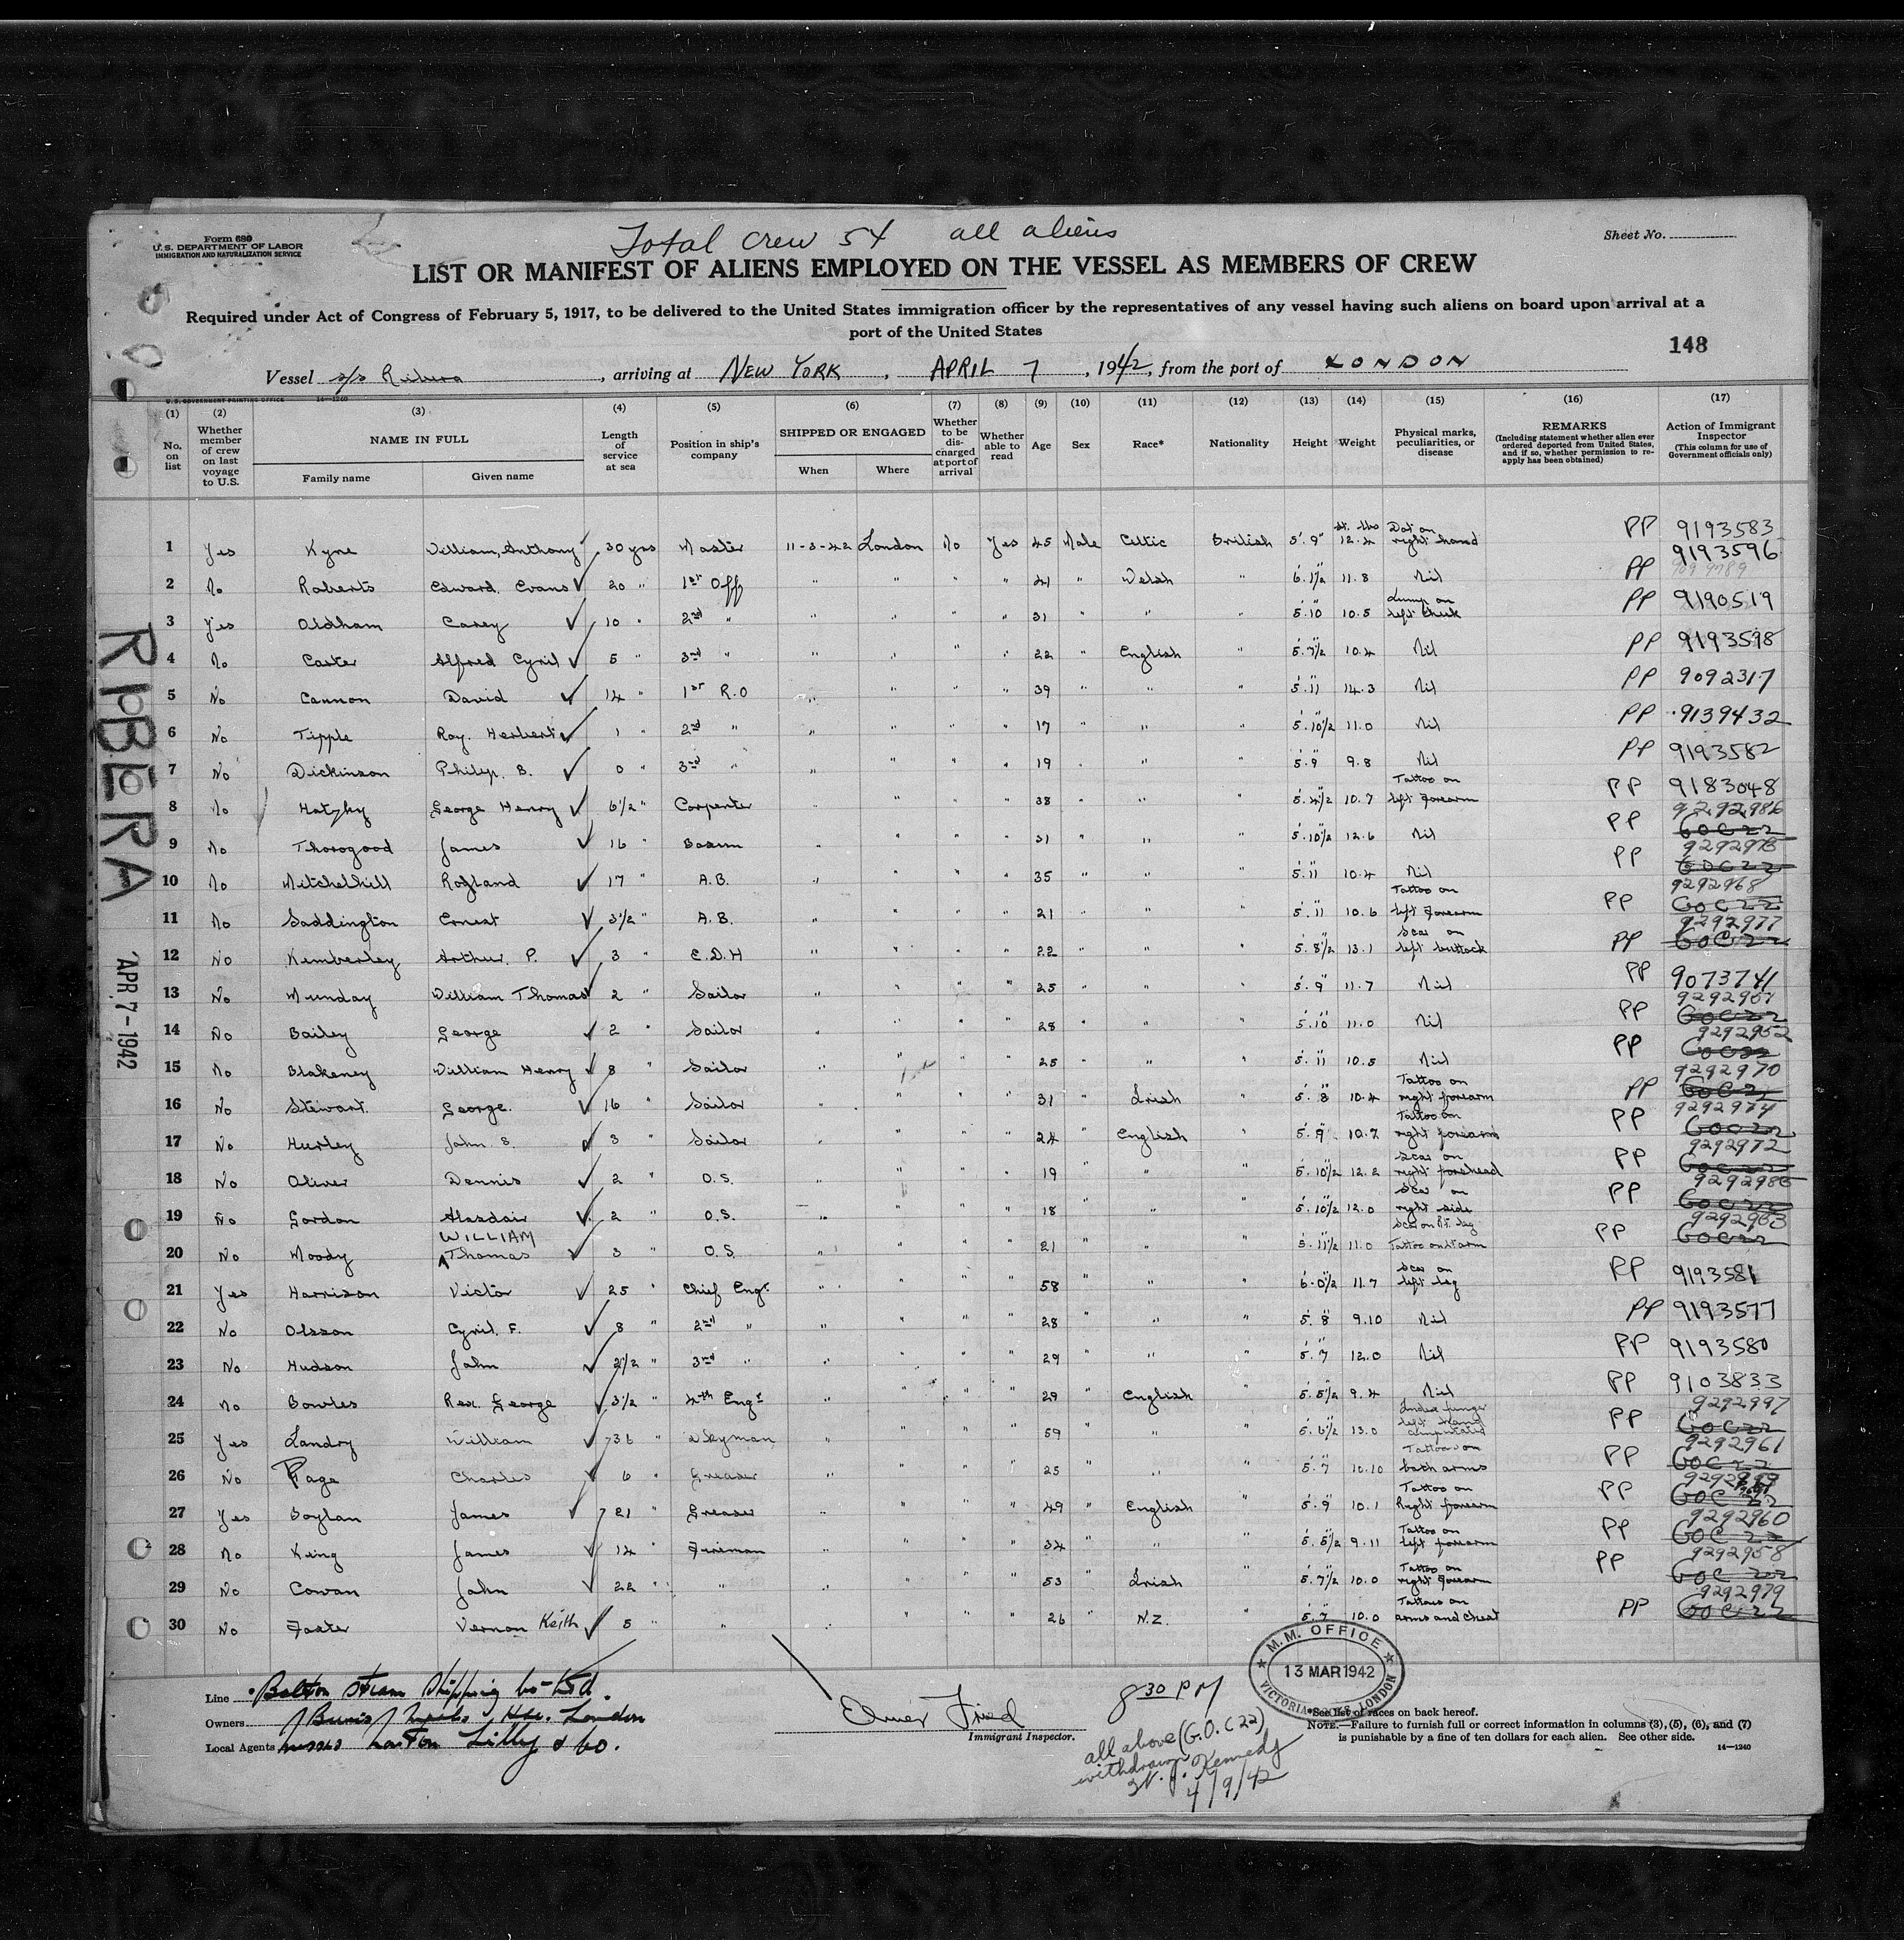 Total crew 54 all aliens
Form 680
U.S. DEPARTMENT OF LABOR
IMMIGRATION AND NATURALIZATION SERVICE
Sheet No.
LIST OR MANIFEST OF ALIENS EMPLOYED ON THE VESSEL AS MEMBERS OF CREW
Required under Act of Congress of February 5, 1917, to be delivered to the United States immigration officer by the representatives of any vessel having such aliens on board upon arrival at a
port of the United States
148
Vessel s/s Ribera, arriving at NEW YORK, APRIL 7, 1942, from the port of LONDON
U.S. GOVERNMENT PRINTING OFFICE 14—1240
(1) No. on list
(2) Whether member of crew on last voyage to U.S.
(3) NAME IN FULL Family name Given name
(4) Length of service at sea
(5) Position in ship's company
(6) SHIPPED OR ENGAGED When Where
(7) Whether to be discharged at port of arrival
(8) Whether able to read
(9) Age
(10) Sex
(11) Race*
(12) Nationality
(13) Height
(14) Weight
(15) Physical marks, peculiarities, or disease
(16) REMARKS (Including statement whether alien ever ordered deported from United States, and if so, whether permission to reapply has been obtained)
(17) Action of Immigrant Inspector (This column for use of Government officials only)
1 Yes Kyne William, Anthony 30 yrs Master 11-3-42 London No Yes 45 Male Celtic British 5'.9" st. lbs 12.4 Dot on right hand PP 9193583
2 No Roberts Edward Evans 20 " 1st Off " " " " 41 " Welsh " 6.1½ 11.8 Nil PP 9193596
3 Yes Oldham Carey 10 " 2nd " " " " " 31 " " " 5.10 10.5 Lump on left cheek PP 9190519
4 No Carter Alfred Cyril 5 " 3rd " " " " " 22 " English " 5.7½ 10.4 Nil PP 9193598
5 No Cannon David 14 " 1st R.O " " " " 39 " " " 5.11 14.3 Nil PP 9092317
6 No Tipple Roy. Herbert 1 " 2nd " " " " " 17 " " " 5.10½ 11.0 Nil PP 9139432
7 No Dickinson Philip. B. 0 " 3rd " " " " " 19 " " " 5.9 9.8 Nil PP 9193582
8 No Hatzky George Henry 6½ " Carpenter " " " " 38 " " " 5.4½ 10.7 Tattoo on left forearm PP 9183048
9 No Thorogood James 16 " Bosun " " " " 31 " " " 5.10½ 12.6 Nil PP 9292986 GOC22
10 No Mitchelhill Rowland 17 " A.B. " " " " 35 " " " 5.11 10.4 Nil PP 9292973 GOC22
11 No Saddington Ernest 3½ " A.B. " " " " 21 " " " 5.11 10.6 Tattoo on left forearm PP 9292968 GOC22
12 No Kemberley Arthur. P. 3 " E.D.H " " " " 22 " " " 5.8½ 13.1 Scar on left buttock PP 9292977 GOC22
13 No Munday William Thomas 2 " Sailor " " " " 25 " " " 5.9 11.7 Nil PP 9073741
14 No Bailey George 2 " Sailor " " " " 28 " " " 5.10 11.0 Nil PP GOC22
15 No Blakeney William Henry 8 " Sailor " " " " 25 " " " 5.11 10.5 Nil PP 9292952 GOC22
16 No Stewart George. 16 " Sailor " " " " 31 " Irish " 5.8 10.4 Tattoo on right forearm PP 9292970 GOC22
17 No Hurley John S. 3 " Sailor " " " " 24 " English " 5.9 10.7 Tattoo on right forearm PP 9292974 GOC22
18 No Oliver Dennis 2 " O.S. " " " " 19 " " " 5.10½ 12.2 Scar on right forehead PP 9292972 GOC22
19 No Gordon Alasdair 2 " O.S. " " " " 18 " " " 5.10½ 12.0 Scar on right side PP 9292985 GOC22
20 No Moody WILLIAM Thomas 3 " O.S. " " " " 21 " " " 5.11½ 11.0 Scar on Rt. leg Tattoo on lt arm PP 9292963 GOC22
21 Yes Harrison Victor 25 " Chief Engr. " " " " 58 " " " 6.0½ 11.7 Scar on left leg PP 9193581
22 No Olsson Cyril. F. 8 " 2nd " " " " " 28 " " " 5.8 9.10 Nil PP 9193577
23 No Hudson John 2½ " 3rd " " " " " 29 " " " 5.7 12.0 Nil PP 9193580
24 No Bowles Rex. George 3½ " 4th Engr " " " " 29 " English " 5.5½ 9.4 Nil PP 9103833
25 Yes Landry William 36 " Dkyman " " " " 59 " " " 5.6½ 13.0 Index finger left hand amputated PP 9292997 GOC22
26 No Page Charles 6 " Greaser " " " " 25 " " " 5.7 10.10 Tattoos on both arms PP 9292961 GOC22
27 Yes Boylan James 21 " Greaser " " " " 49 " English " 5.9 10.1 Tattoo on Right forearm PP GOC22
28 No King James 14 " Fireman " " " " 34 " " " 5.5½ 9.11 Tattoo on left forearm PP 9292960 GOC22
29 No Cowan John 22 " " " " " " 53 " Irish " 5.7½ 10.0 Tattoo on right forearm PP 9292958 GOC22
30 No Foster Vernon Keith 5 " " " " " " 26 " N.Z. " 5.7 10.0 Tattoos on arms and chest PP 9292979 GOC22
RIBERA
APR 7-1942
Line Bolton Steam Shipping Co Ltd.
Owners London
Local Agents Norton Lilly & Co.
Elmer Fried
Immigrant Inspector.
8 30 PM
all above (G.O.C 22)
withdrawn
Kennedy
4/9/42
M.M. OFFICE
13 MAR 1942
VICTORIA DOCKS, LONDON
*See list of races on back hereof.
NOTE.—Failure to furnish full or correct information in columns (3), (5), (6), and (7)
is punishable by a fine of ten dollars for each alien. See other side.
14—1240